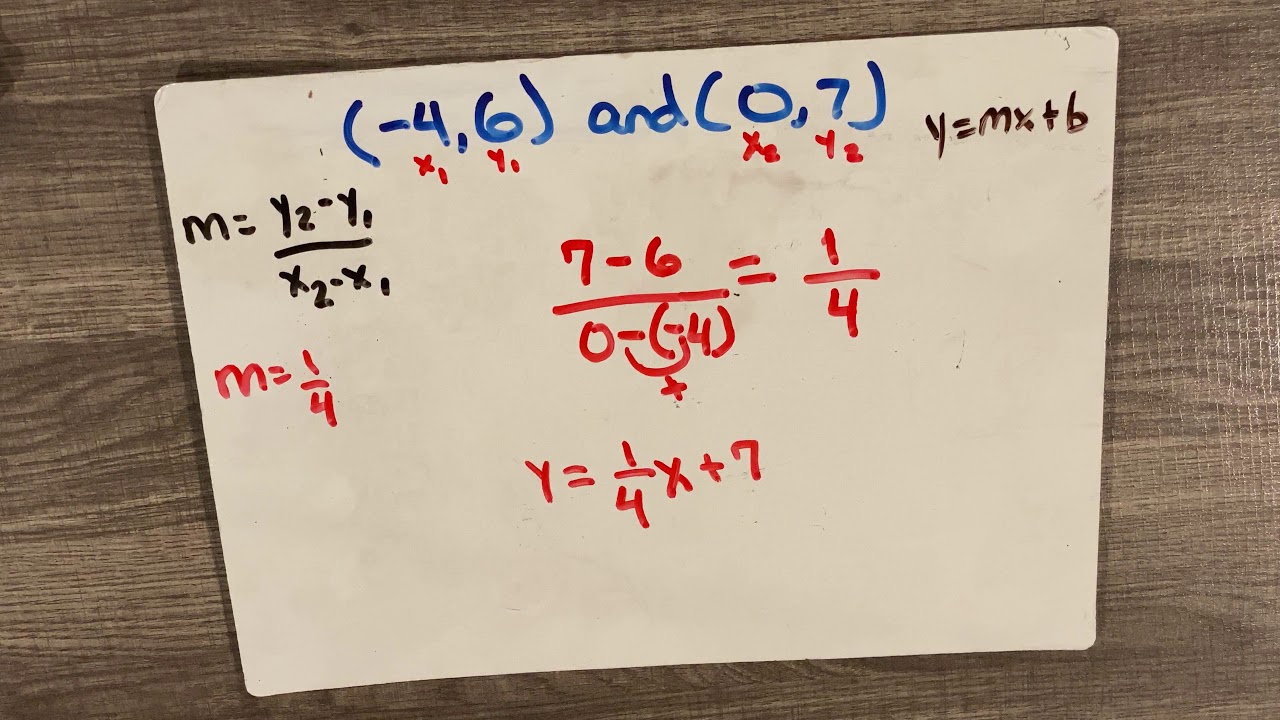 (-4,6) and (0,7)
x₁ y₁ x₂ y₂
y=mx+b
m= y₂-y₁
x₂-x₁
7-6 = 1
0-(-4) 4
+
m= 1
4
y= 1/4 x+7